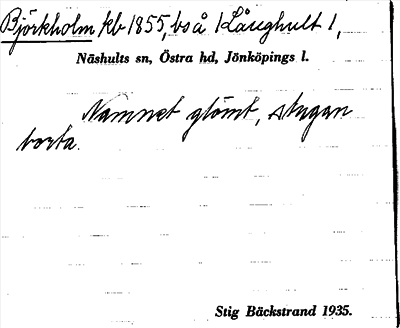 Björkholm kb 1855, bs å Långhult 1,
Näshults sn, Östra hd, Jönköpings l.
Namnet glömt, stugan
borta.
Stig Bäckstrand 1935.